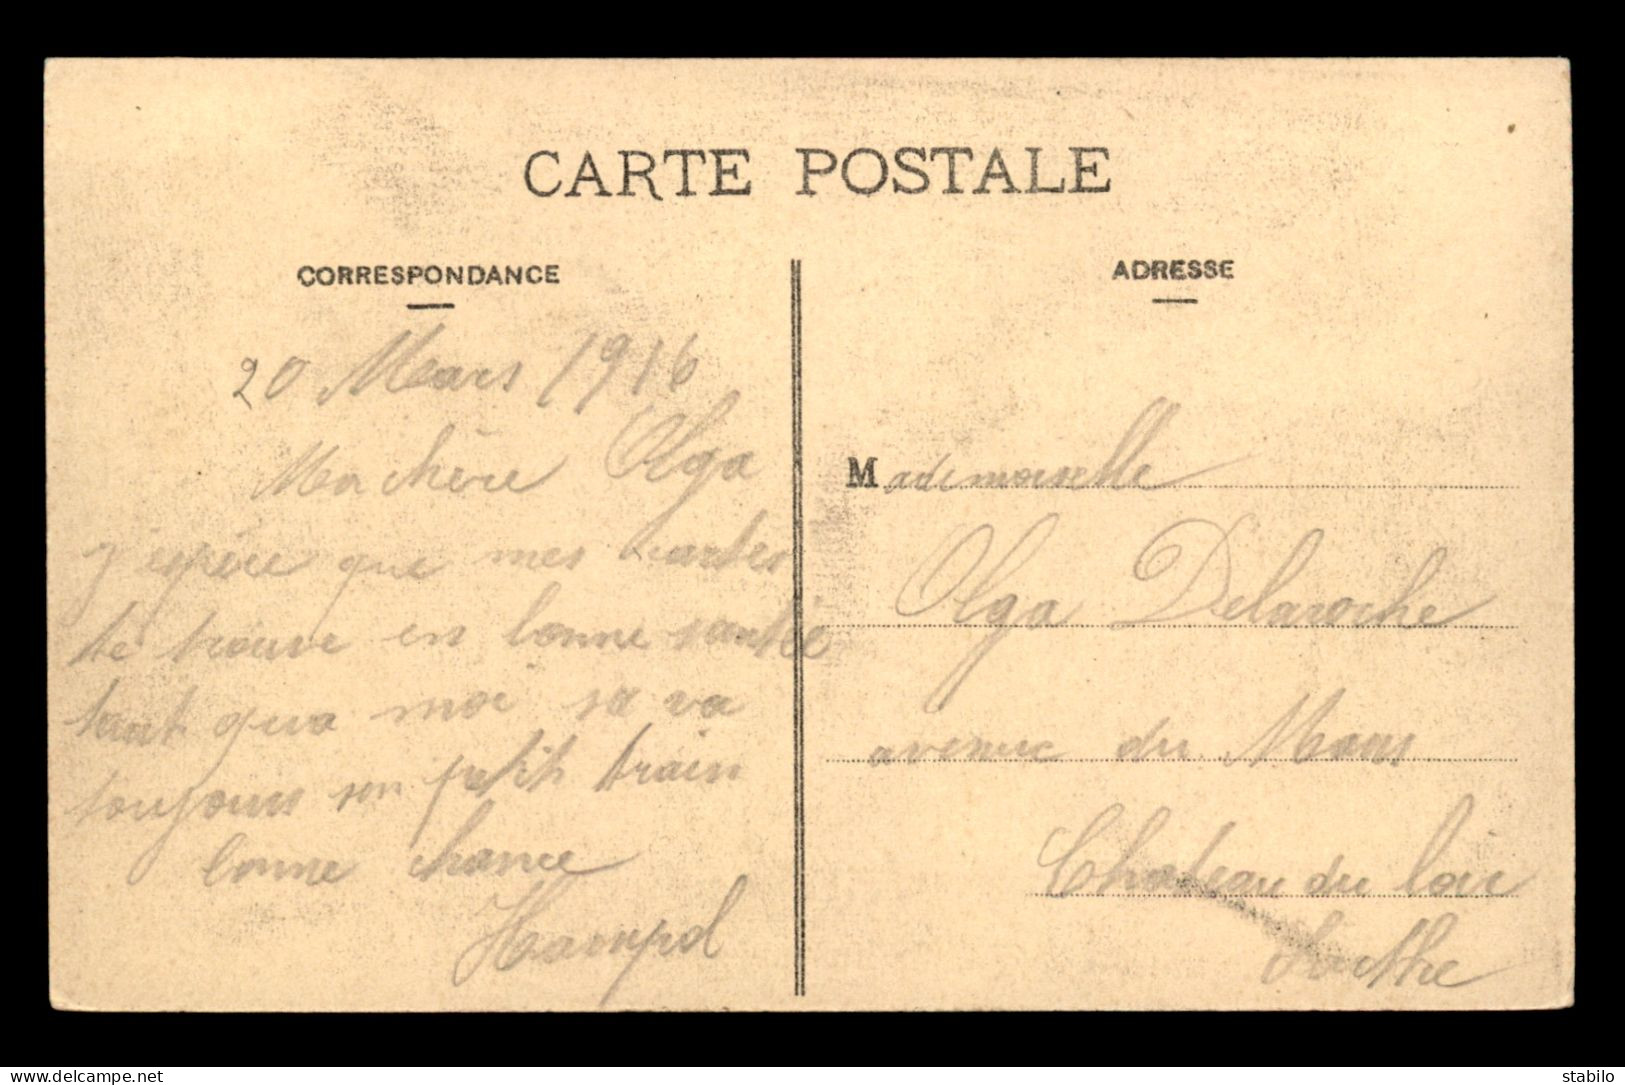 CARTE POSTALE
CORRESPONDANCE
20 Mars 1916
Ma chère Olga
j'espère que mes cartes
te trouve en bonne santée
tant qua moi sa va
toujours son petit train
bonne chance
ADRESSE
Mademoiselle
Olga Delaroche
avenue du Mans
Chateau du loir
Sarthe
stabilo